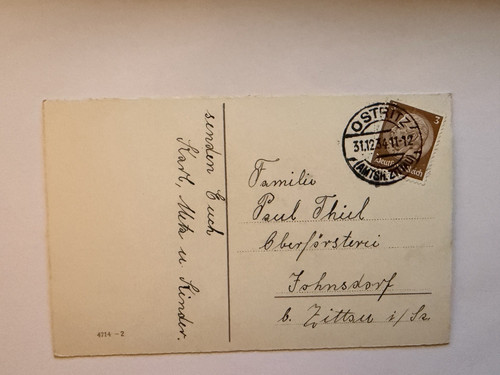 senden Euch
Karl, Meta u Kinder.
4714 - 2
OSTRITZ
31.12.34.11-12
(AMTSH. ZITTAU)
3
Familie
Paul Thiel
Oberförsterei
Johnsdorf
b. Zittau i/Sa